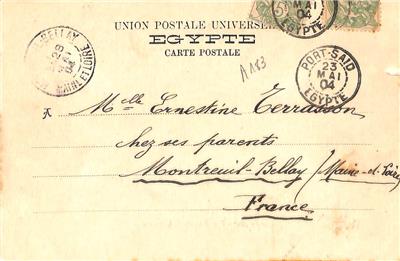 UNION POSTALE UNIVERSELLE
EGYPTE
CARTE POSTALE
5
MAI
04
EGYPTE
PORT-SAID
23
MAI
04
EGYPTE
BELLAY
28
04
A183
A
Melle Ernestine Terrasson
chez ses parents
Montreuil-Bellay (Maine-et-Loire)
France